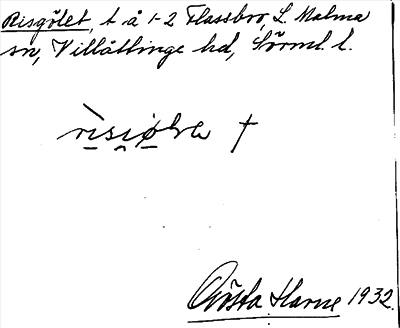 Risgölet, t. å 1-2 Flassbro, L. Malma
sn, Villåttinge hd, Sörml. l.
Gösta Harne 1932.